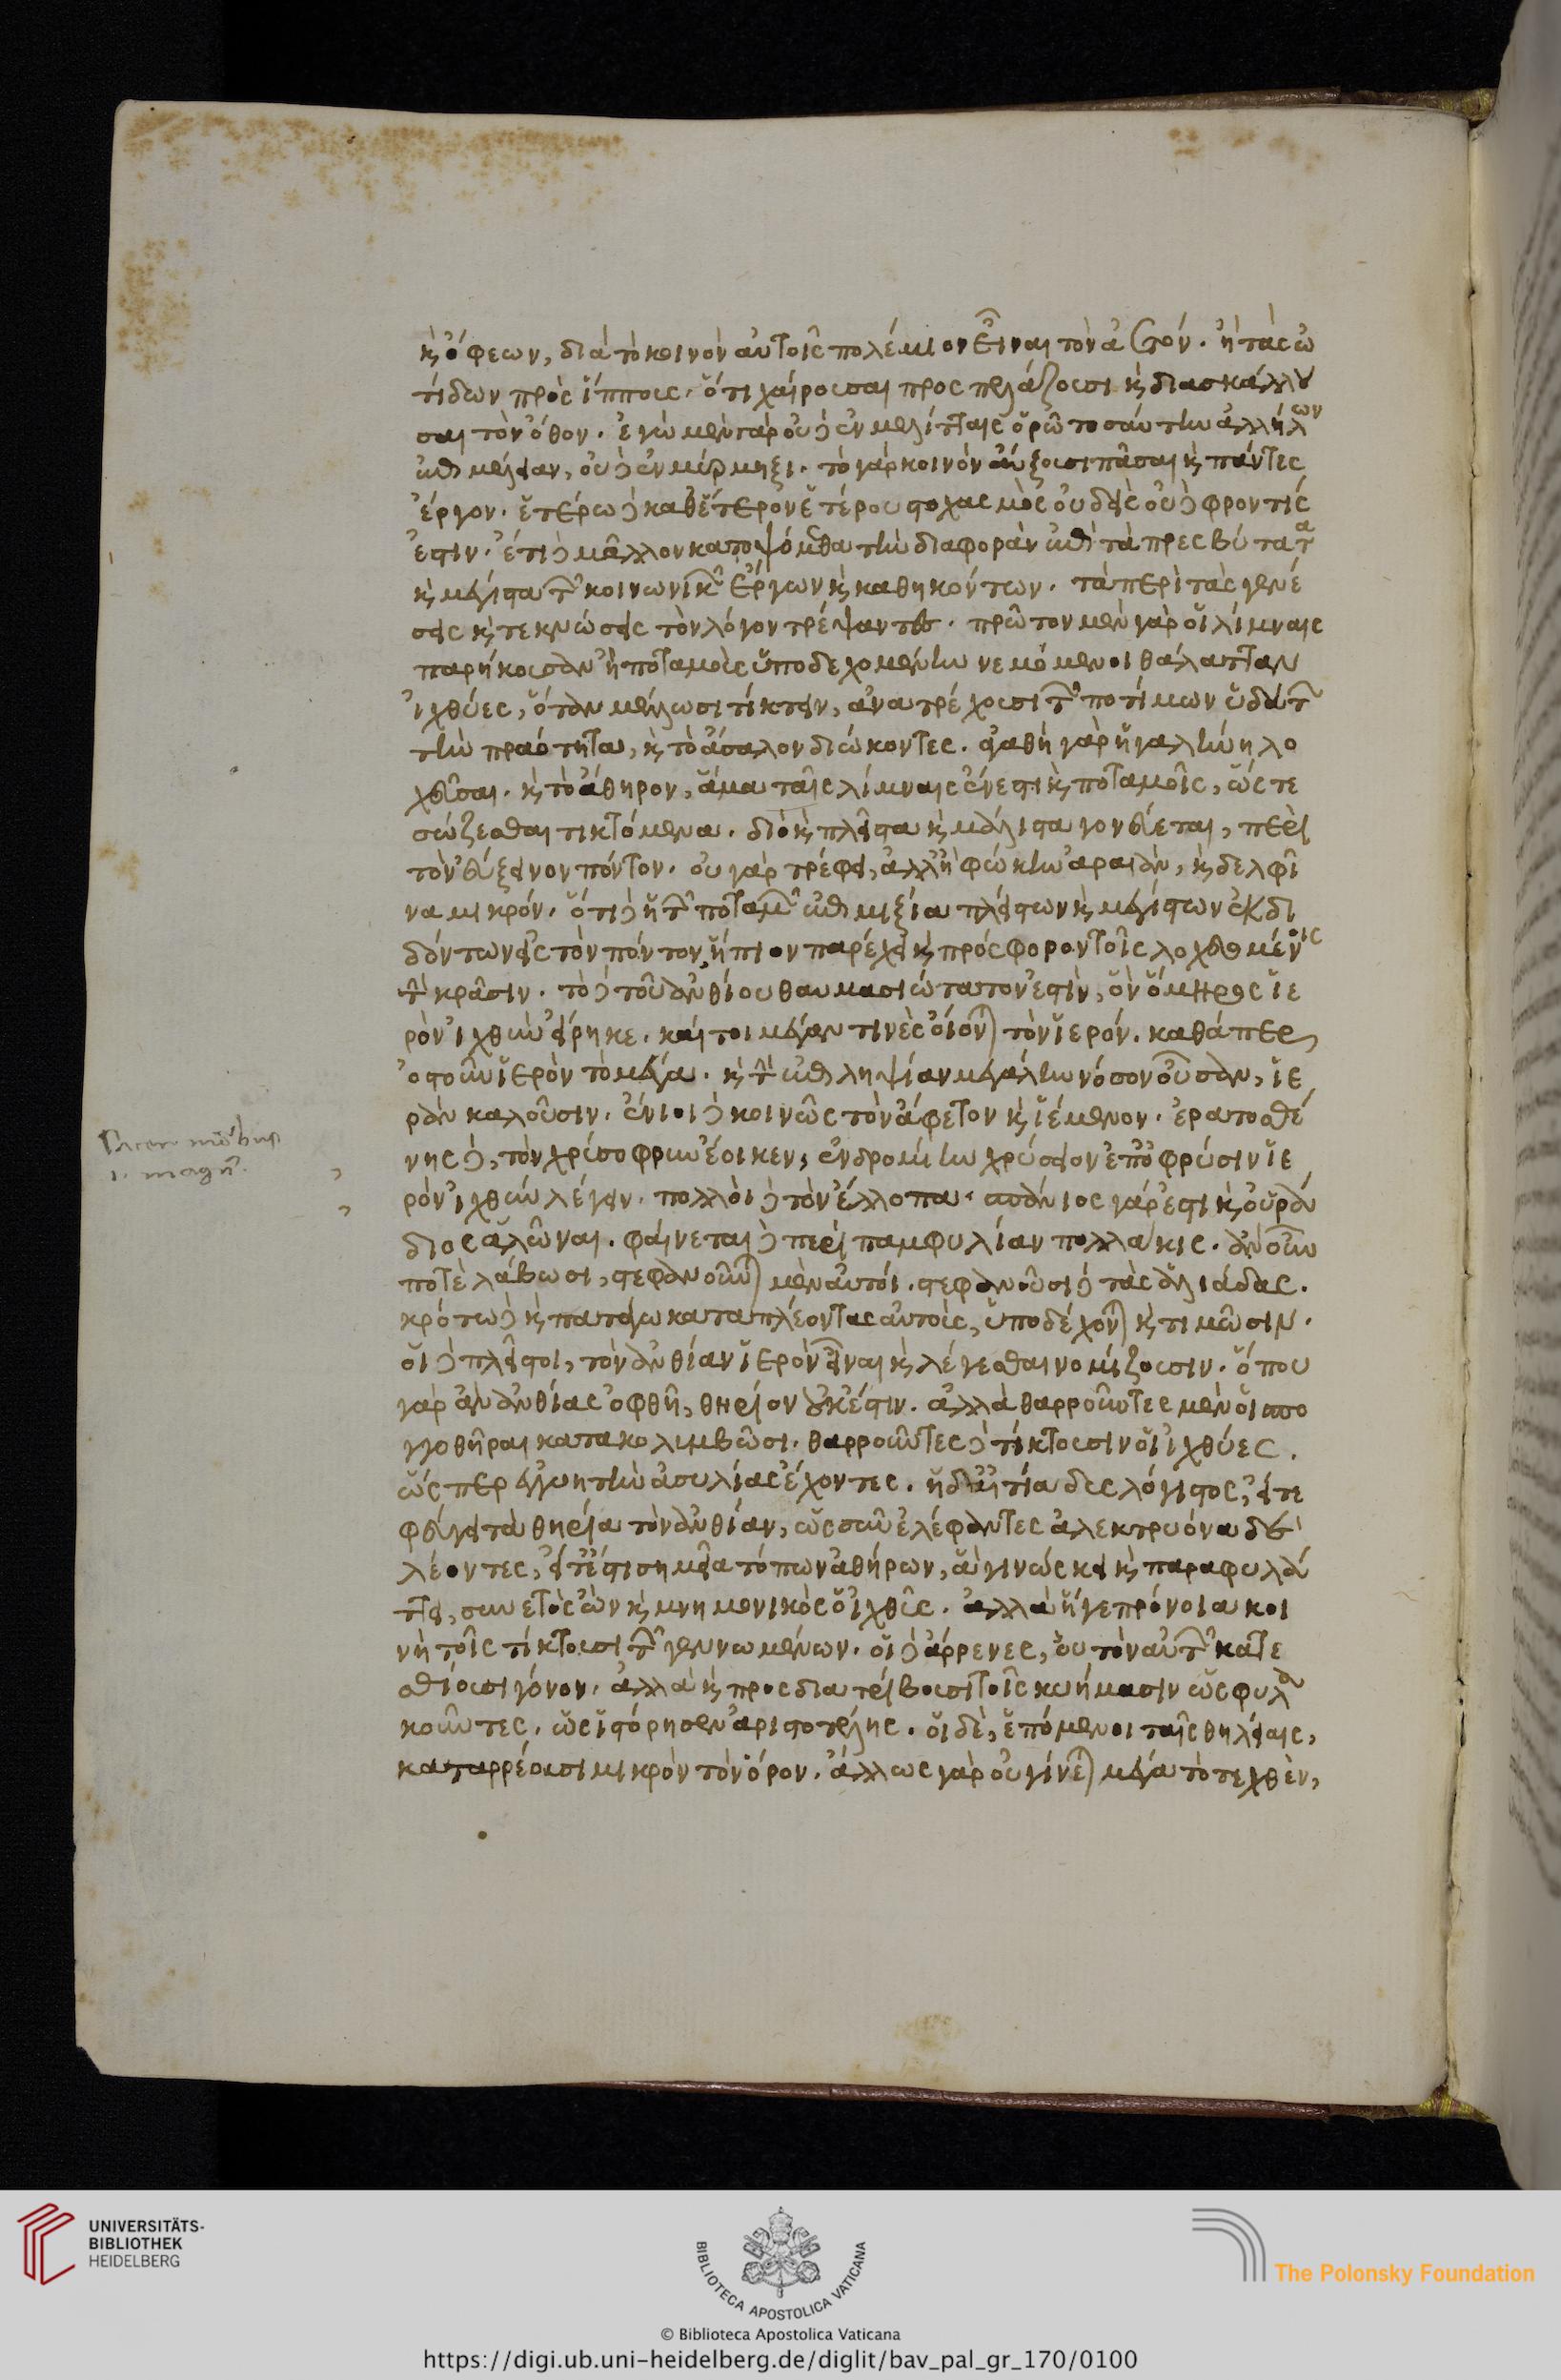 κ̀ ὄφεων, διὰ τὸ κοινὸν αὐτοῖς πολέμιον εἶναι τὸν ἀετόν. ἢ τὰς ὠ
τίδων πρὸς ἵππους. ὅτι χαίρουσαι προσπελάζουσι κ̀ διασκάλλου
σαι τὸν ὄθον. ἐγὼ μὲν γὰρ οὐδ᾽ ἐν μελίτταις ὁρῶ τοσαύτην ἀλλήλων
ἐπιμέλειαν, οὐδ᾽ ἐν μύρμηξι. τὸ γὰρ κοινὸν αὔξουσι πᾶσαι κ̀ πάντες
ἔργον. ἑτέρω δὲ καθ᾽ ἕτερον ἑτέρου στοχασμὸς οὐδεὶς οὐδὲ φροντίς
ἐστιν. ἔτι δὲ μᾶλλον κατοψόμεθα τὴν διαφορὰν ἐπὶ τὰ πρεσβύτατα
κ̀ μέγιστα τῶν κοινωνικῶν ἔργων κ̀ καθηκόντων. τὰ περὶ τὰς γενέ
σεις κ̀ τεκνώσεις τὸν λόγον τρέψαντες. πρῶτον μὲν γὰρ οἱ λίμναις
παρήκουσαν ἢ ποταμοὺς ὑποδεχομένην νεμόμενοι θάλατταν
ἰχθύες, ὅταν μέλλωσι τίκτειν, ἀνατρέχουσι τῶν ποτίμων ὑδάτων
τὴν πραότητα, κ̀ τὸ ἄσαλον διώκοντες. ἀγαθὴ γὰρ ἡ γαλήνη λο
χεῦσαι. κ̀ τὸ ἄθηρον, ἅμα ταῖς λίμναις ἔνεστι κ̀ ποταμοῖς, ὥστε
σώζεσθαι τικτόμενα. διὸ κ̀ πλεῖστα κ̀ μάλιστα γονεύεται, περὶ
τὸν εὔξεινον πόντον. οὐ γὰρ τρέφει, ἀλλ᾽ ἢ φώκην ἀραιὰν, κ̀ δελφῖ
να μικρόν. ἔτι δὲ ἡ τῶν ποταμῶν ἐπιμιξία πλείστων κ̀ μεγίστων ἐκδι
δόντων εἰς τὸν πόντον ἤπιον παρέχει κ̀ πρόσφορον τοῖς λοχευομένοις
τὴν κρᾶσιν. τὸ δὲ τοῦ ἀνθίου θαυμασιώτατον ἐστὶν, ὃν ὅμηρος ἱε
ρὸν ἰχθὺν εἴρηκε. καίτοι μέγαν τινὲς οἴονται τὸν ἱερόν. καθάπερ
ὀστοῦν ἱερὸν τὸ μέγα. κ̀ τὴν ἐπιληψίαν μεγάλην νόσον οὖσαν, ἱε
ρὰν καλοῦσιν. ἔνιοι δὲ κοινῶς τὸν ἄφετον κ̀ ἱέμενον. ἐρατοσθέ
νης δὲ, τὸν χρύσοφρυν ἔοικεν, εὐδρομίην χρύσειον ἐπ᾽ ὀφρύσιν ἱε
ρὸν ἰχθὺν λέγειν. πολλοὶ δὲ τὸν ἔλλοπα. σπάνιος γάρ ἐστι κ̀ οὐ ῥᾴ
διος ἁλῶναι. φαίνεται δὲ περὶ παμφυλίαν πολλάκις. ἂν οὖν
ποτὲ λάβωσι, στεφανοῦνται μὲν αὐτοί. στεφανοῦσι δὲ τὰς ἁλιάδας.
κρότω δὲ κ̀ πατάγω καταπλέοντας αὐτοὺς, ὑποδέχονται κ̀ τιμῶσιν.
οἱ δὲ πλεῖστοι, τὸν ἀνθίαν ἱερὸν εἶναι κ̀ λέγεσθαι νομίζουσιν. ὅπου
γὰρ ἂν ἀνθίας ὀφθῇ, θηρίον οὐκ ἔστιν. ἀλλὰ θαρροῦντες μὲν οἱ σπο
γγοθῆραι κατακολυμβῶσι. θαρροῦντες δὲ τίκτουσιν οἱ ἰχθύες.
ὥσπερ ἐγγυητὴν ἀσυλίας ἔχοντες. ἡ δ᾽ αἰτία δυσλόγιστος, εἴτε
φεύγει τὰ θηρία τὸν ἀνθίαν, ὡς σῦν ἐλέφαντες ἀλεκτρυόνα δὲ
λέοντες, εἴτ᾽ ἔστι σημεῖα τόπων ἀθήρων, ἃ γινώσκει κ̀ παραφυλά
ττει, συνετὸς ὢν κ̀ μνημονικὸς ὁ ἰχθύς. ἀλλὰ ἥ γε πρόνοια κοι
νὴ τοῖς τίκτουσι τῶν γεννωμένων. οἱ δὲ ἄρρενες, οὐ τὸν αὑτῶν κατε
σθίουσι γόνον. ἀλλὰ κ̀ προσδιατρίβουσι τοῖς κυήμασιν ὠοφυλα
κοῦντες. ὡς ἱστόρησεν ἀριστοτέλης. οἱ δὲ, ἑπόμενοι ταῖς θηλείαις,
καταρρέουσι μικρὸν τὸν ὁρον. ἄλλως γὰρ οὐ γίνεται μέγα τὸ τεχθὲν,
Sacer morbus
i. magn̄.
UNIVERSITÄTS-
BIBLIOTHEK
HEIDELBERG
BIBLIOTECA APOSTOLICA VATICANA
The Polonsky Foundation
© Biblioteca Apostolica Vaticana
https://digi.ub.uni-heidelberg.de/diglit/bav_pal_gr_170/0100